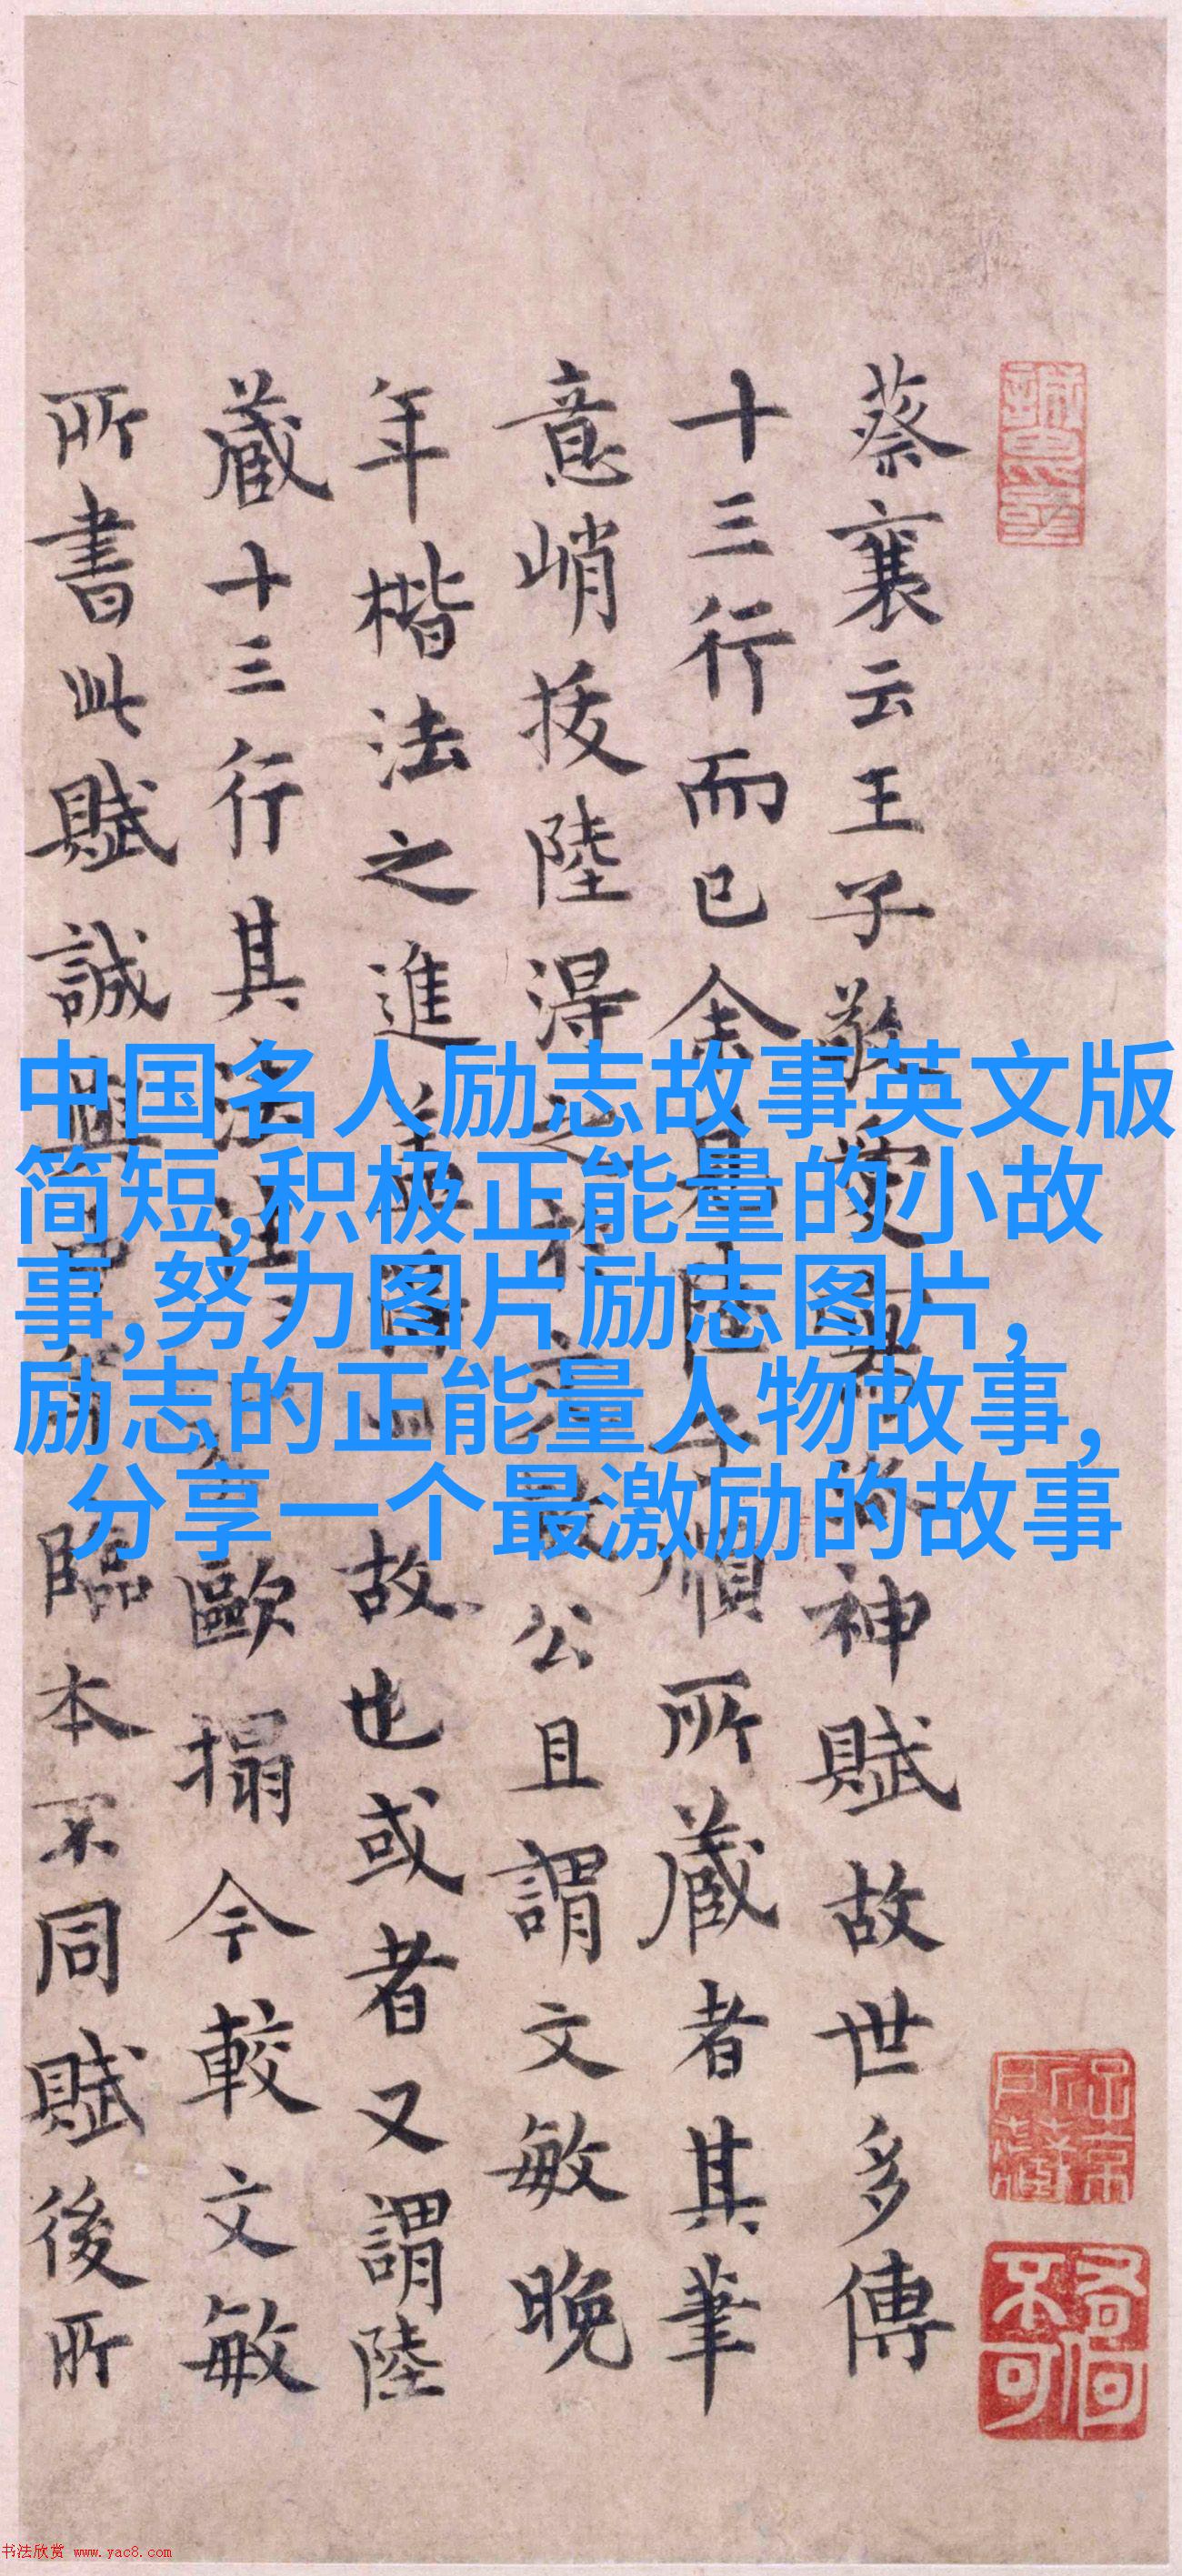 蔡襄云王子敬愛寫神賦故世多傳
十三行而已余見陸子順所藏者其筆
意峭拔陸得之公且謂文敏晚
年楷法之進故也或者又謂陸
藏十三行其法歐搨今較文敏
所書此賦誠與臨本不同賦後所
中国名人励志故事英文版
简短,积极正能量的小故
事,努力图片励志图片,
励志的正能量人物故事,
分享一个最激励的故事
书法欣赏 www.yac8.com